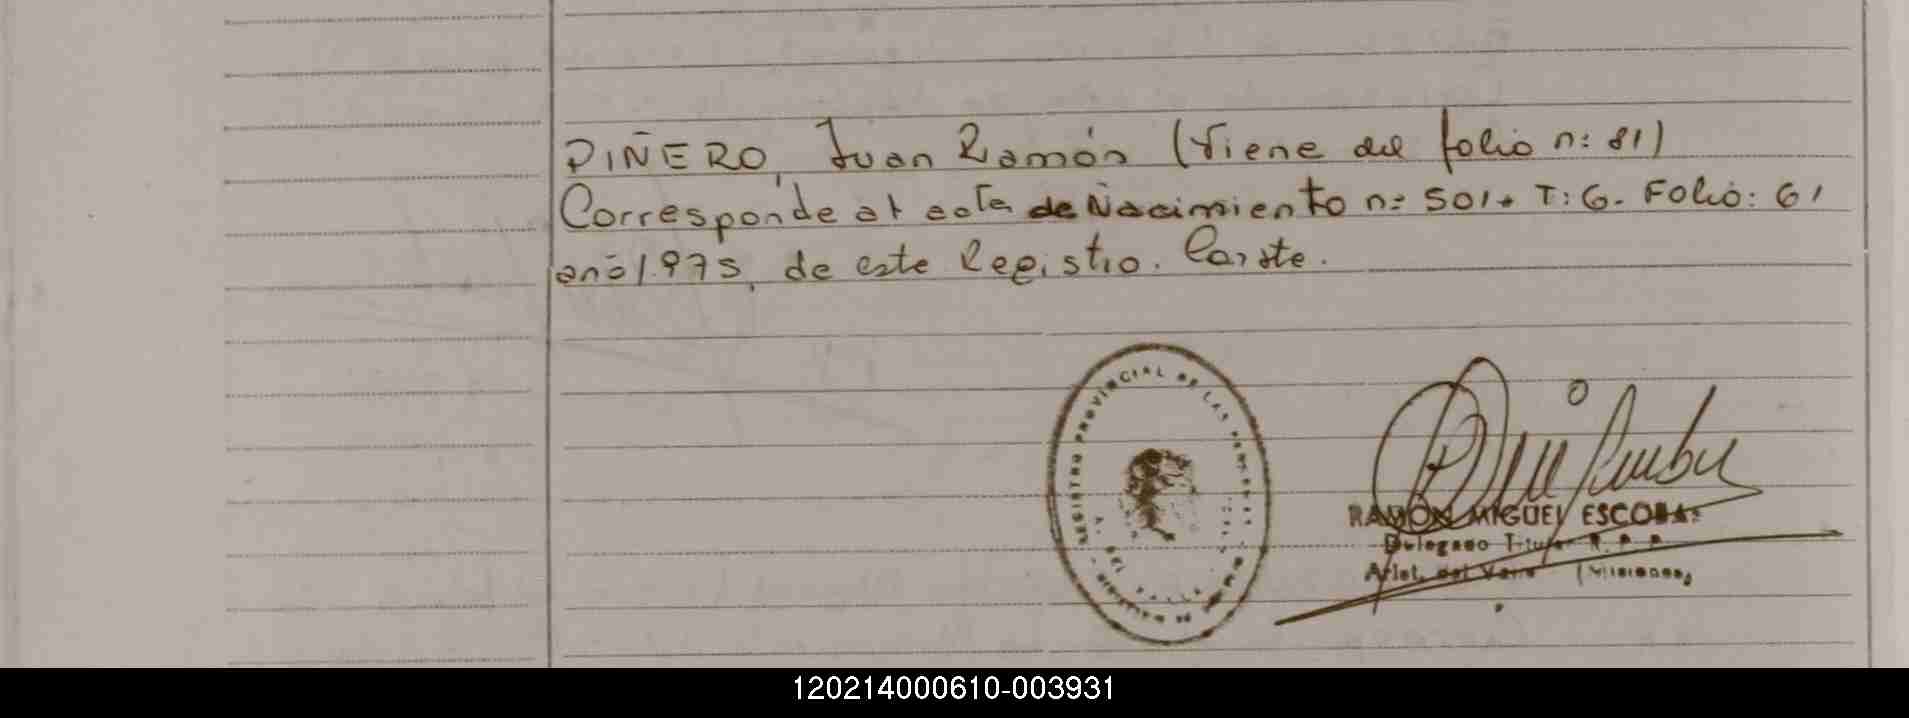 PIÑERO, Juan Ramón (Viene del folio n: 81)
Corresponde al acta de Nacimiento n: 501. T: 6. Folio: 61
año 1.975, de este Registro. Conste.
REGISTRO PROVINCIAL DE LAS PERSONAS
A. DEL VALLE
RAMON MIGUEL ESCOBAR
Delegado Titular R. P. P.
Arist. del Valle (Misiones)
120214000610-003931